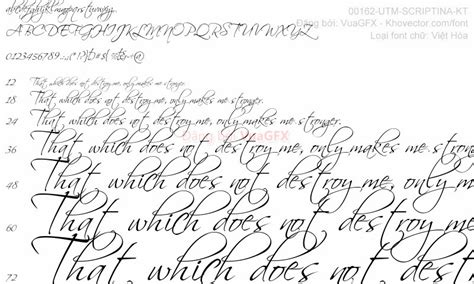 abcdefghijklmnopqrstuvwxyz
00162-UTM-SCRIPTINA-KT
ABCDEFGHIJKLMNOPQRSTUVWXYZ
Đăng bởi: VuaGFX - Khovector.com/font
Loại font chữ: Việt Hóa
0123456789
12 That which does not destroy me, only makes me stronger.
18 That which does not destroy me, only makes me stronger.
24 That which does not destroy me, only makes me stronger.
Đăng bởi VuaGFX
36 That which does not destroy me, only makes me stron
48 That which does not destroy me, only m
60 That which does not destroy me
72 That which does not dest